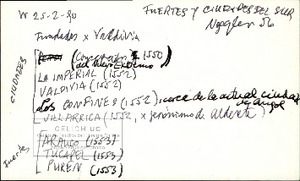 W 25-2-90
FUERTES Y CIUDADES DEL SUR
Fundadas x Valdivia
CIUDADES
(Concepción 1550)
LA IMPERIAL (1552)
VALDIVIA (1552)
LOS CONFINES (1552) cerca de la actual ciudad de Angol
VILLARRICA (1552, x Jerónimo de Alderete)
CELICH UC
Fuertes
ARAUCO (1553)
TUCAPEL (1553)
PUREN (1553)